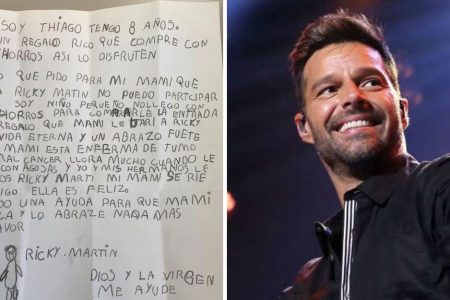 SOY THIAGO TENGO 8 AÑOS.
UN REGALO RICO QUE COMPRE CON
HORROS ASI LO DISFRUTEN
O QUE PIDO PARA MI MAMI QUE
A RICKY MATIN NO PUEDO PARTCIPAR
SOY NIÑO PEQUEÑO NOLLEGO CON
HORROS PARA COMPRARLE LA ENTRADA
REGALO QUE MAMI LE DARI A RICKY
VIDA ETERNA Y UN ABRAZO FUETE
MAMI ESTA ENFERMA DE TUMO
RAL CANCER LLORA MUCHO CUANDO LE
CON AGUJAS Y YO Y MIS HERMANOS LE
OS RICKY MARTI MI MAM SE RIE
IGO ELLA ES FELIZ.
DO UNA AYUDA PARA QUE MAMI
CA Y LO ABRAZE NADA MAS
AVOR
RICKY. MARTIN
DIOS Y LA VIRGEN
ME AYUDE